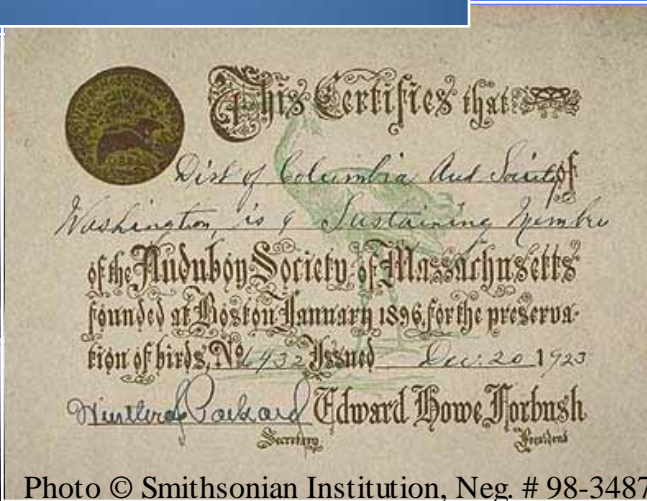 This Certifies that
Dist of Columbia Aud Society of
Washington, is a Sustaining Member
of the Audubon Society of Massachusetts
founded at Boston January 1896, for the preserva-
tion of birds, No 6932 Issued Dec. 20 1923
Winthrop Packard Edward Howe Forbush
Secretary President
Photo © Smithsonian Institution, Neg. # 98-3487